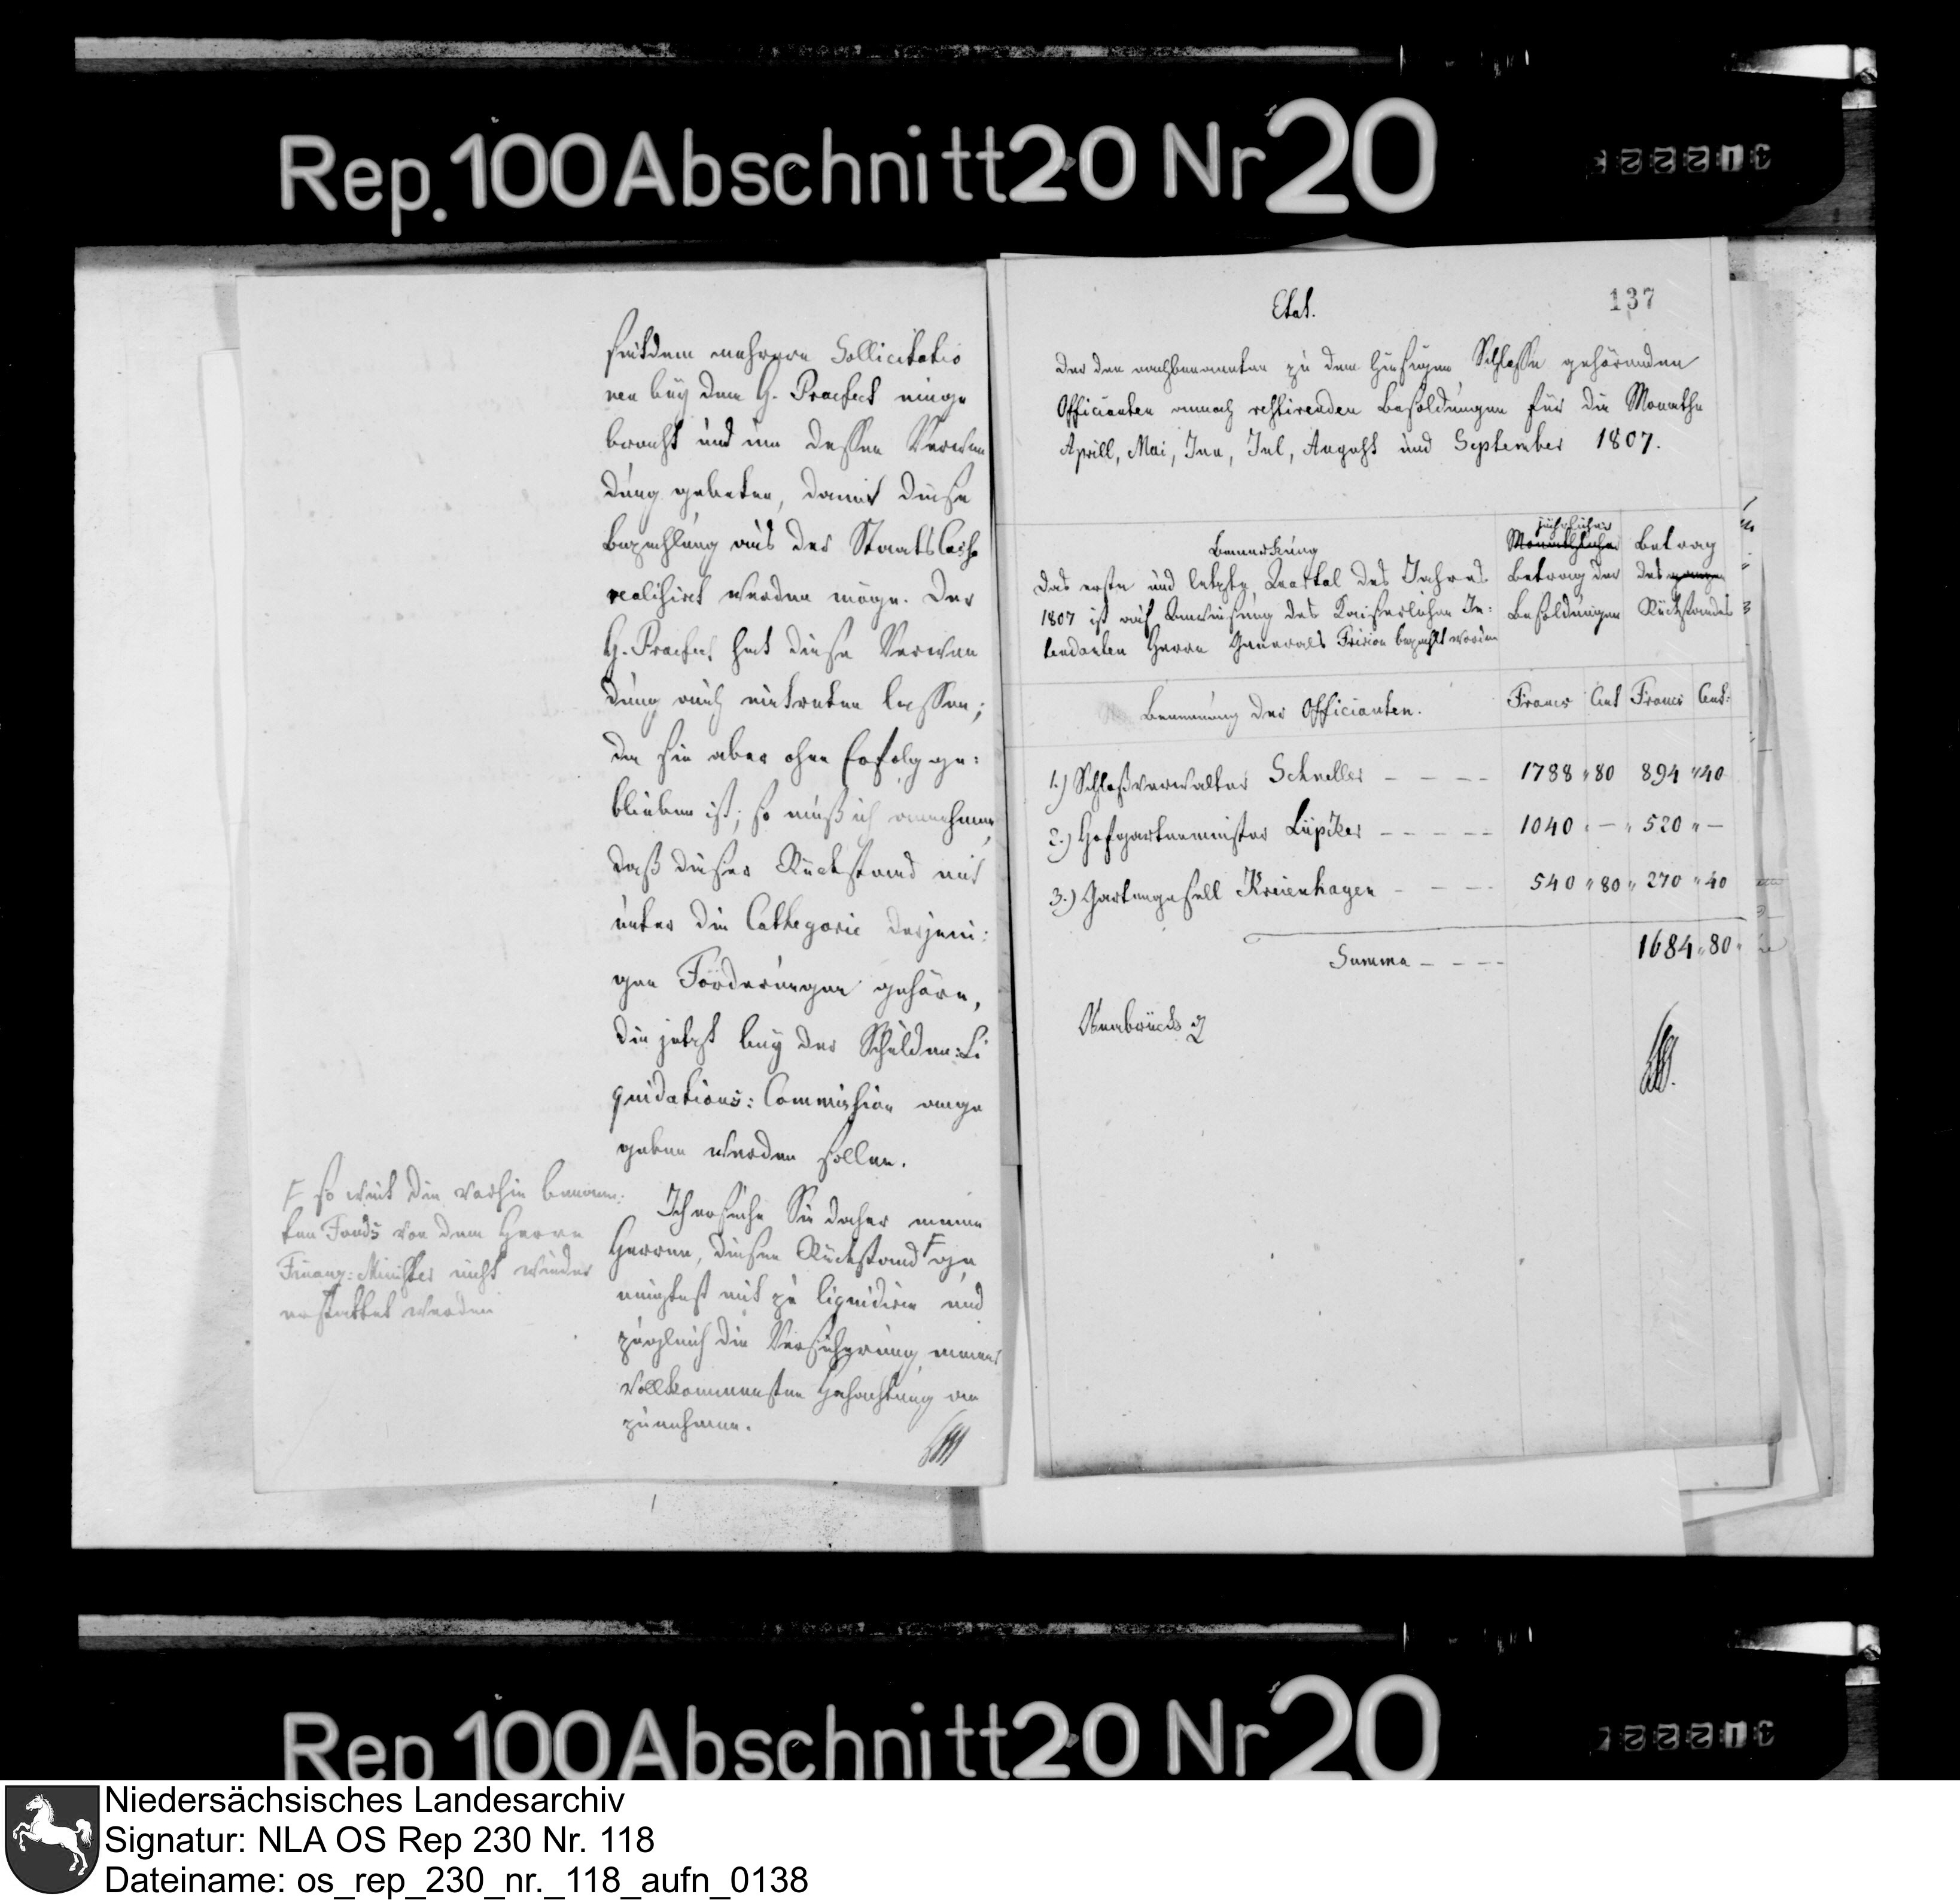 Rep. 100 Abschnitt 20 Nr 20
seitdem mehrere Sollicitatio
nen bey dem H. Praefect einge
bracht und um dessen Verwen
dung gebeten, damit diese
Bezahlung aus der Staats Casse
realisirt werden möge. Der
H. Praefect hat diese Verwen
dung auch eintreten lassen;
da sie aber ohne Erfolg ge:
blieben ist; so muß ich annehmen,
daß dieser Rückstand mit
unter die Cathegorie derjeni:
gen Forderungen gehöre,
die jetzt bey der Schulden: Li
quidations: Commission ange
geben werden sollen.
Ich ersuche Sie daher meine
Herren, diesen Rückstand F ge
neigtest mit zu liquidiren und
zugleich die Versicherung meiner
vollkommensten Hochachtung an
zunehmen.
F so weit die vorhin benann:
ten Fonds von dem Herrn
Finanz: Minister nicht wieder
erstattet werden
137
Etat.
Der den nachbenannten zu dem hiesigen Schlosse gehörenden
Officianten annoch restirenden Besoldungen für die Monathe
Aprill, Mai, Jun, Jul, August und September 1807.
Bemerkung
Das erste und letzte Quartal des Jahres
1807 ist auf Anweisung des Kaiserlichen In:
tendanten Herrn Generals Frision bezahlt worden
jährlicher
Monathlicher
Betrag der
Besoldungen
Betrag
des ganzen
Rückstandes
Benennung der Officianten. Francs Cent Francs Cent:
1.) Schloßverwalter Schneller – – – – 1788 " 80 894 " 40
2.) Hofgartenmeister Lüpker – – – – – 1040 " – " 520 " –
3.) Gartengesell Kreienhagen – – – – 540 " 80 " 270 " 40
Summa – – – – 1684 " 80
Osnabrück
Rep 100 Abschnitt 20 Nr 20
Niedersächsisches Landesarchiv
Signatur: NLA OS Rep 230 Nr. 118
Dateiname: os_rep_230_nr._118_aufn_0138